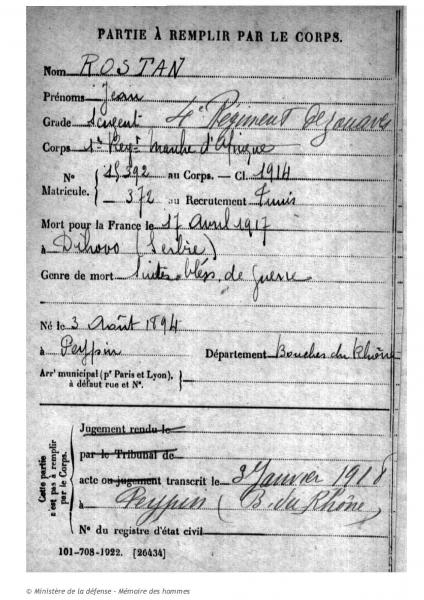 PARTIE À REMPLIR PAR LE CORPS.
Nom ROSTAN
Prénoms Jean
Grade Sergent 4e Régiment de zouaves
Corps 1er Regt marche d'Afrique
N° 15392 au Corps. — Cl. 1914
Matricule. 372 au Recrutement Tunis
Mort pour la France le 17 avril 1917
à Dihovo (Serbie)
Genre de mort Suites bless. de guerre
Né le 3 Août 1894
à Peypin Département Bouches du Rhône
Arr' municipal (p' Paris et Lyon),
à défaut rue et N°.
Cette partie
n'est pas à remplir
par le Corps.
Jugement rendu le
par le Tribunal de
acte ou jugement transcrit le 3 Janvier 1918
à Peypin (B. du Rhône)
N° du registre d'état civil
101-708-1922. [26434]
© Ministère de la défense - Mémoire des hommes